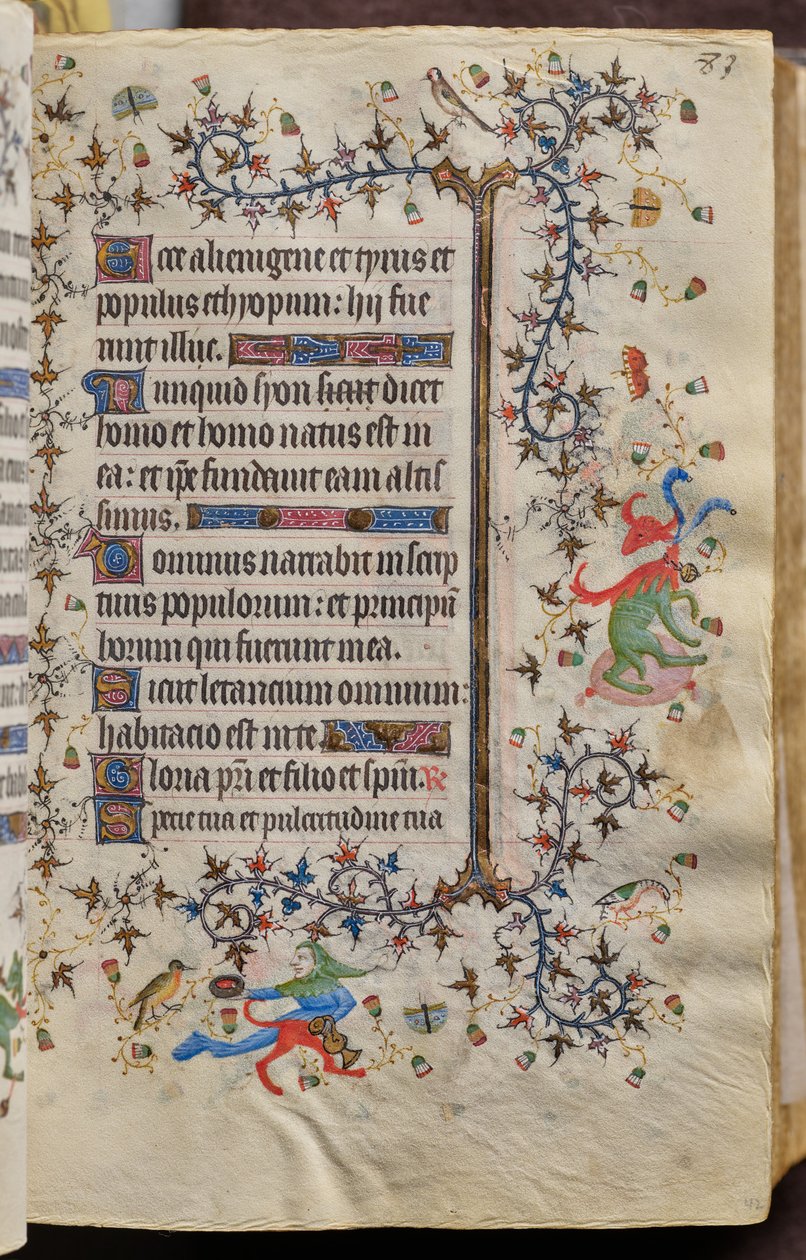 83
Ecce alienigene et tyrus et
populus ethyopum: hii fue
runt illuc.
Nunquid syon sicut dicet
homo et homo natus est in
ea: et ip̄e fundauit eam altis
simus.
Dominus narrabit in scrip
turis populorum: et principū
horum qui fuerunt in ea.
Sicut letancium omnium:
habitacio est in te.
Gloria pr̄i et filio et spiri̅. R̅
Specie tua et pulcritudine tua
42